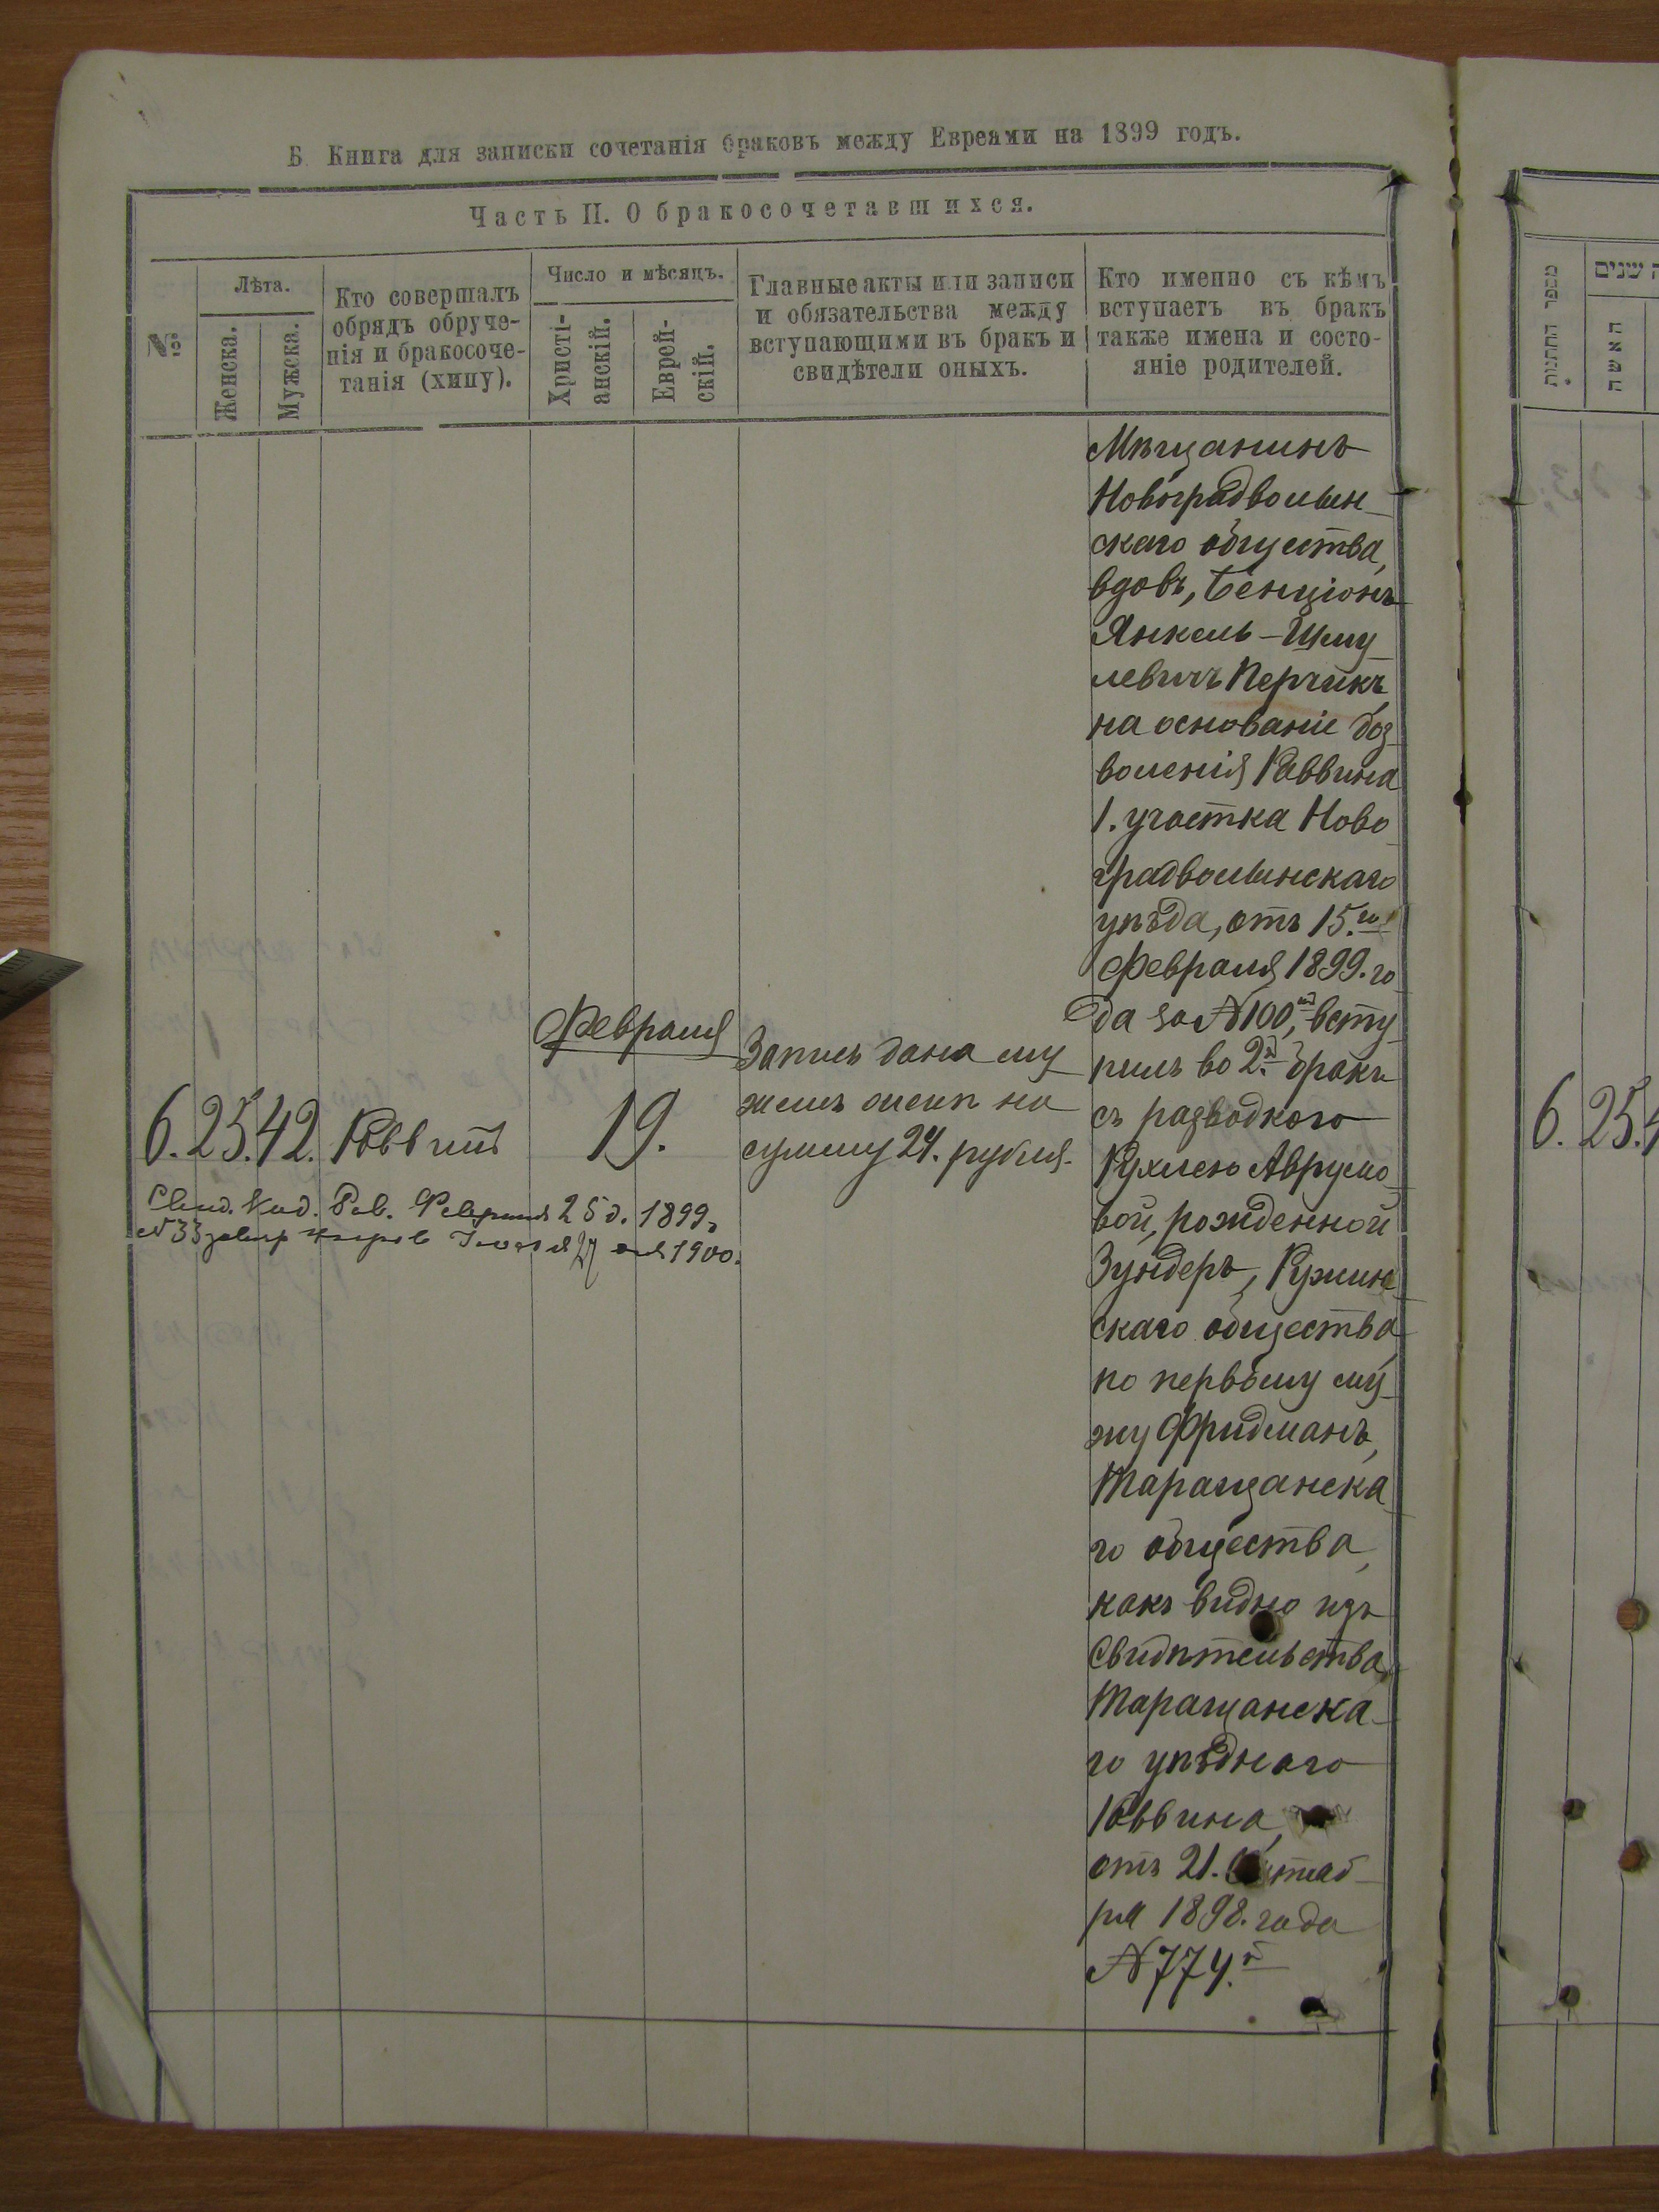 Б. Книга для записки сочетанія браковъ между Евреями на 1899 годъ.
Часть II. О бракосочетавшихся.
№
Лѣта.
Женска.
Мужска.
Кто совершалъ
обрядъ обруче-
нія и бракосоче-
танія (хипу).
Число и мѣсяцъ.
Христі-
анскій.
Еврей-
скій.
Главные акты или записи
и обязательства между
вступающими въ бракъ и
свидѣтели оныхъ.
Кто именно съ кѣмъ
вступаетъ въ бракъ
также имена и состо-
яніе родителей.
6. 25. 42. Раввинъ
Февраля
19.
Запись дана му
жемъ женѣ на
сумму 24. рубля.
Свид. Февраля 25 д. 1899
№ 33 1900.
Мѣщанинъ
Новоградволын-
скаго общества,
вдовъ, Бенціонъ
Янкель-Шму
левичъ Перчикъ
на основаніе доз
воленія Раввина
1. участка Ново
градволынскаго
уѣзда, отъ 15.го
Февраля 1899. го
да за № 100, всту
пилъ во 2.й бракъ
съ разводкого
Рухлею Аврумо
вой, рожденной
Зундеръ, Ружин
скаго общества
по первому му-
жу Фридманъ,
Таращанска
го общества,
какъ видно изъ
Свидѣтельства
Таращанска-
го уѣзднаго
Раввина,
отъ 21.
ря 1898. года
№ 774.й
מספר החתונות
שנים
האשה
6. 25.